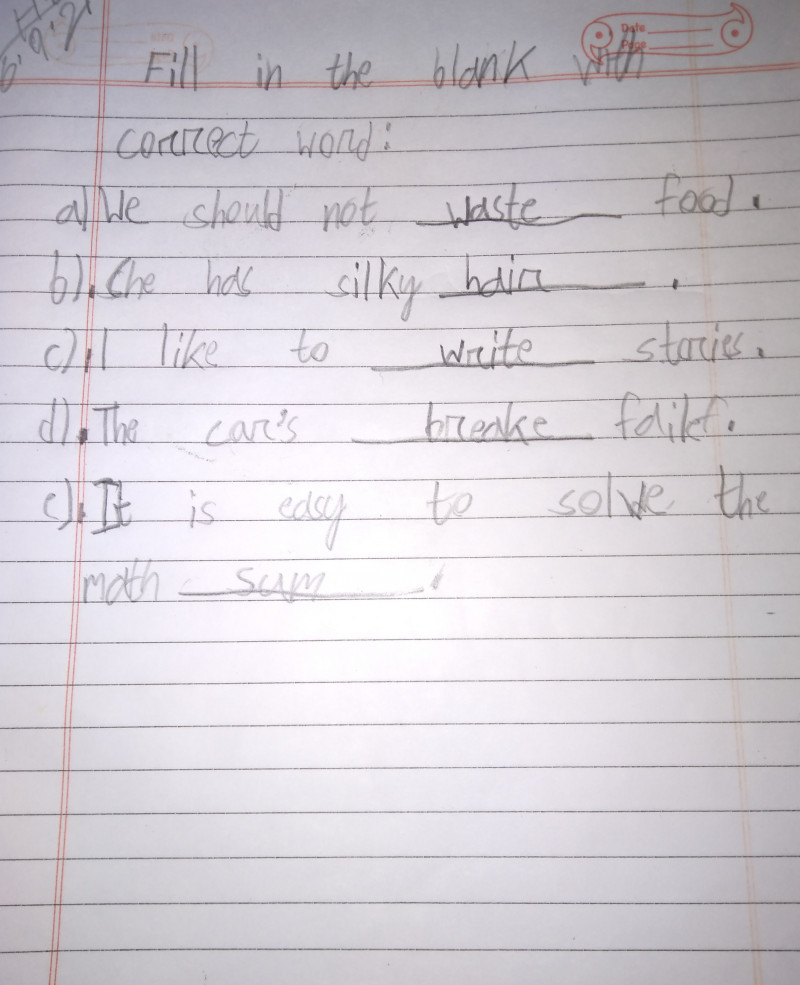 Date
Page
Fill in the blank with
correct word:
a) We should not waste food.
b). She has silky hair.
c). I like to write stories.
d). The car's breake failkf.
c). It is easy to solve the
math sum.